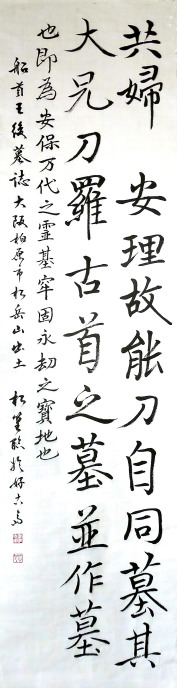 共婦 安理故能刀自同墓其
大兄刀羅古首之墓並作墓
也即為安保万代之霊基牢固永劫之寶地也
船首王後墓誌大阪柏原市松岳山出土